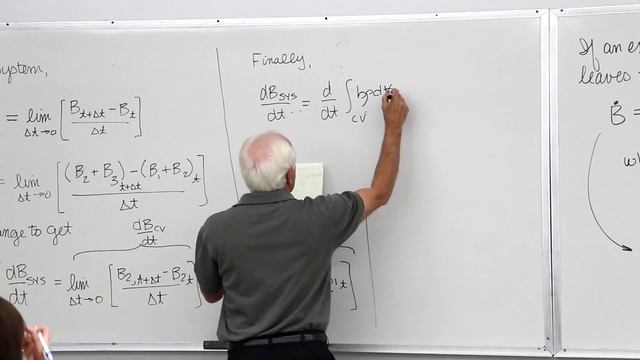 ystem,
= lim Δt→0 [ (B t+Δt − B t) / Δt ]
= lim Δt→0 [ ((B2 + B3) t+Δt − (B1 + B2) t) / Δt ]
ange to get
dBcv/dt
dBsys/dt = lim Δt→0 [ (B2, t+Δt − B2 t) / Δt
t ]
Finally,
dBSYS/dt = d/dt ∫CV bρd
If an e
leaves
Ḃ =
w